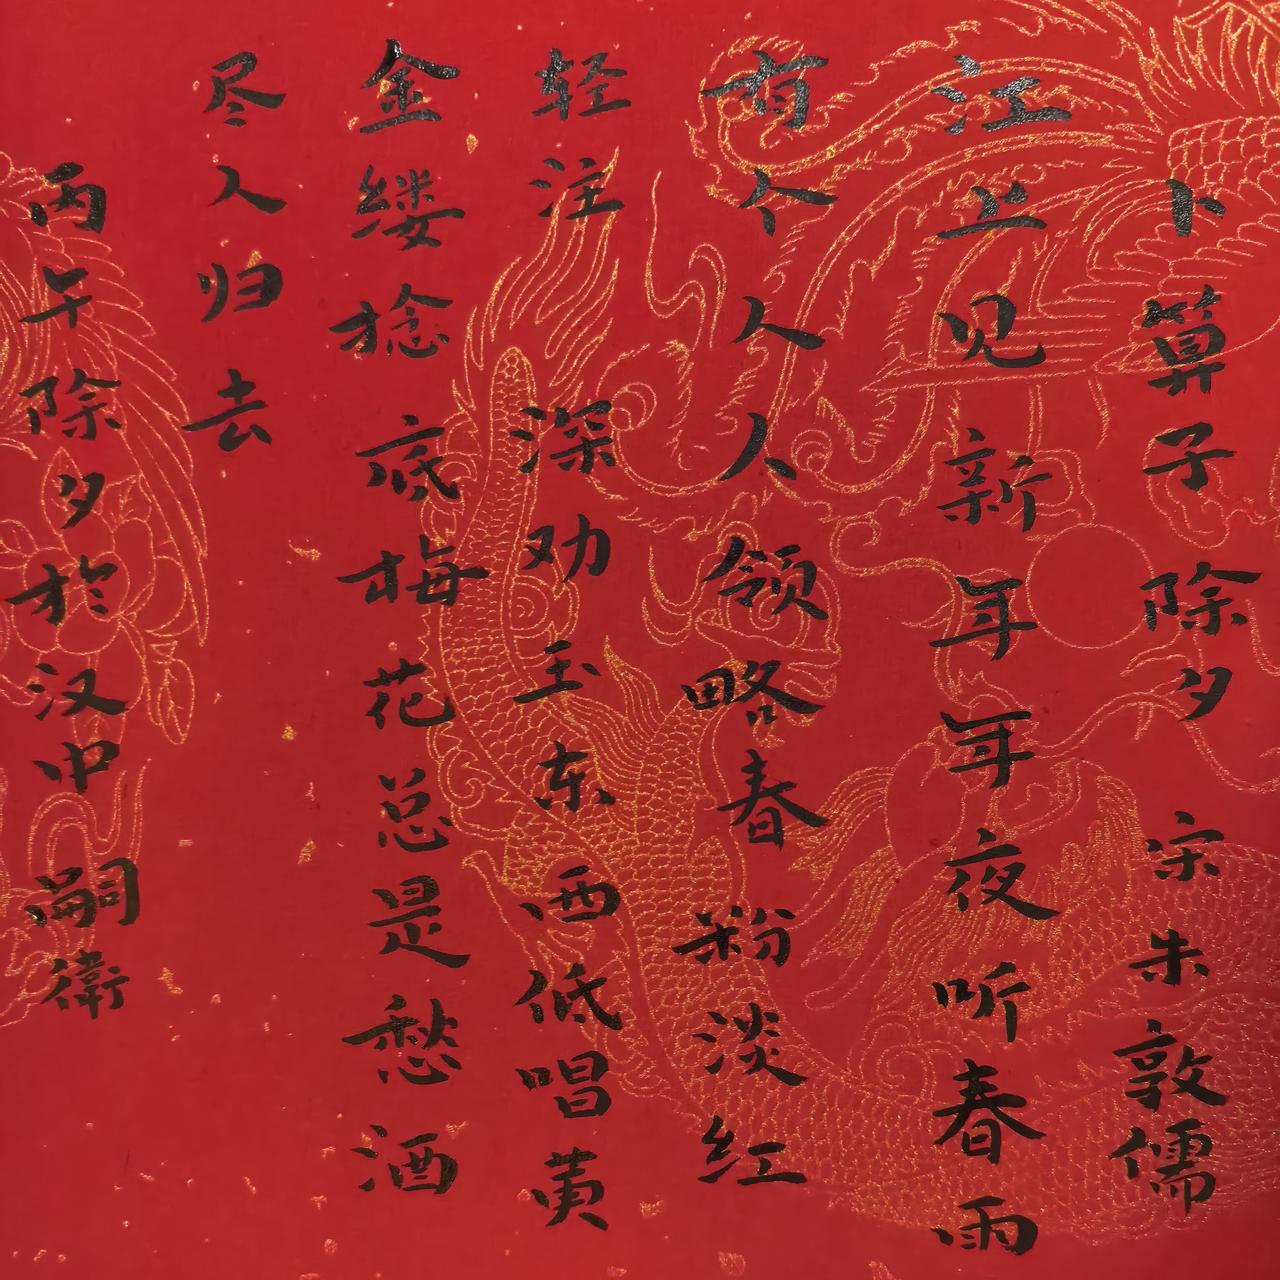 卜算子 除夕 宋 朱敦儒
江上见新年年夜听春雨
有个人人领略春粉淡红
轻注深劝玉东西低唱黄
金缕捻底梅花总是愁酒
尽人归去
丙午除夕於汉中嗣衛